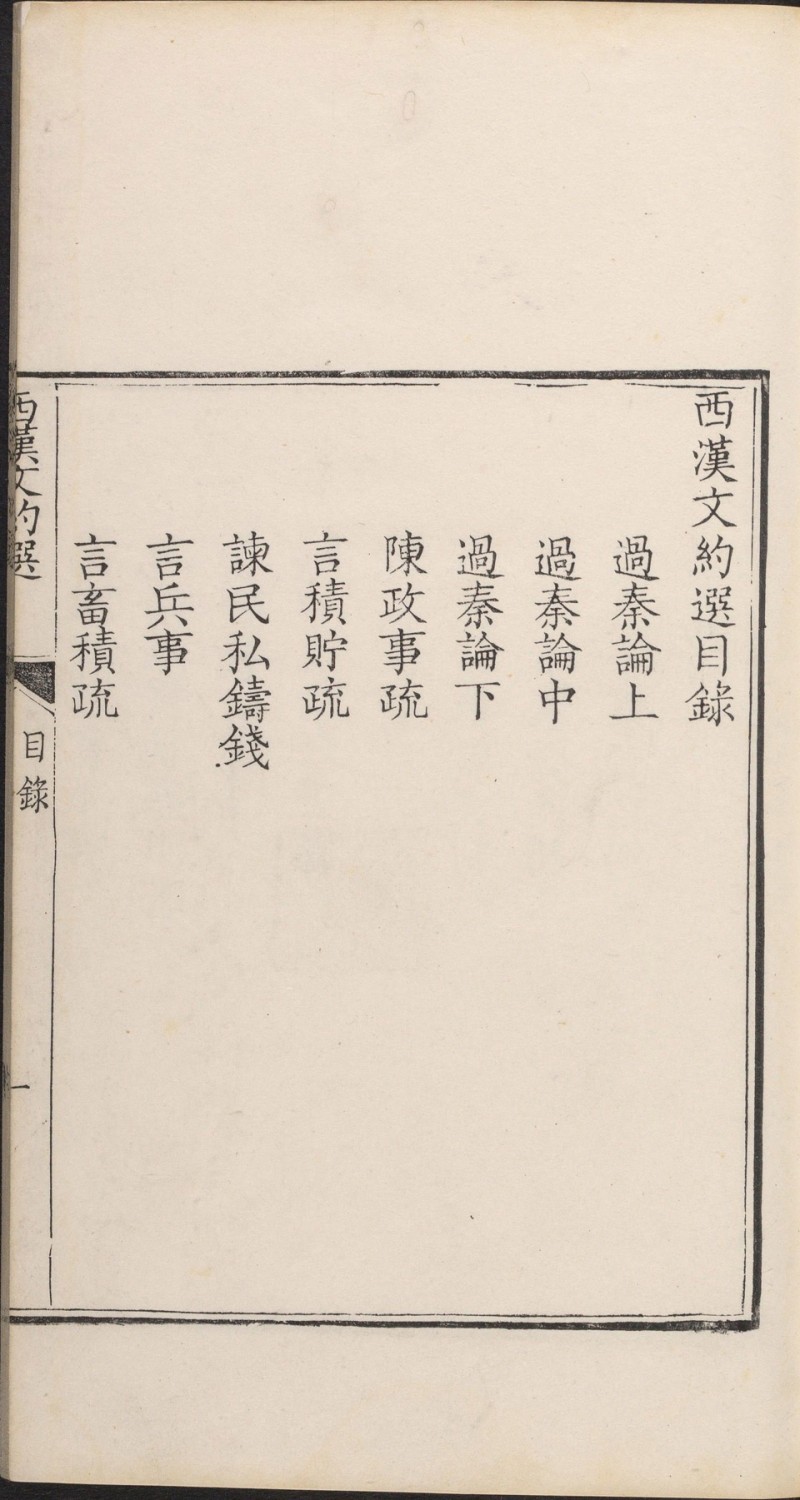 西漢文約選目錄
過秦論上
過秦論中
過秦論下
陳政事疏
言積貯疏
諫民私鑄錢
言兵事
言畜積疏
西漢文約選
目錄
一